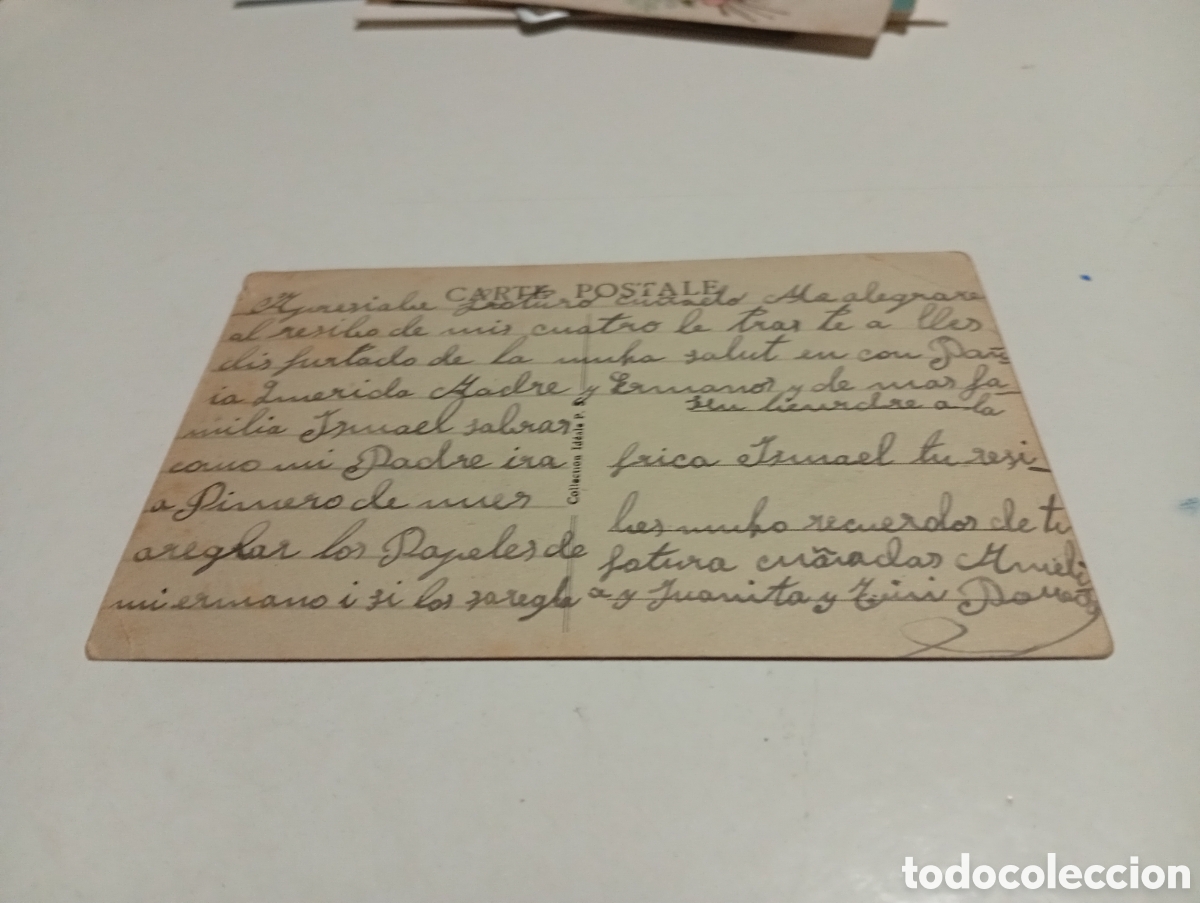 CARTE POSTALE
Apresiable froturo cuñado Me alegrare
al resibo de mis cuatro le tras te a lles
dis furtado de la muha salut en con Pañ
ia Querida Madre y Ermanos y de mas fa-
milia Ismael sabras
como mi Padre ira
a Pimero de mes
areglar los Papeles de
mi ermano i si los saregla
sen a la
frica Ismael tu resi-
bes muho recuerdos de tu
fotura cuñadas Ameli
a y Juanita y
Collection Idéale P. S.
todocoleccion